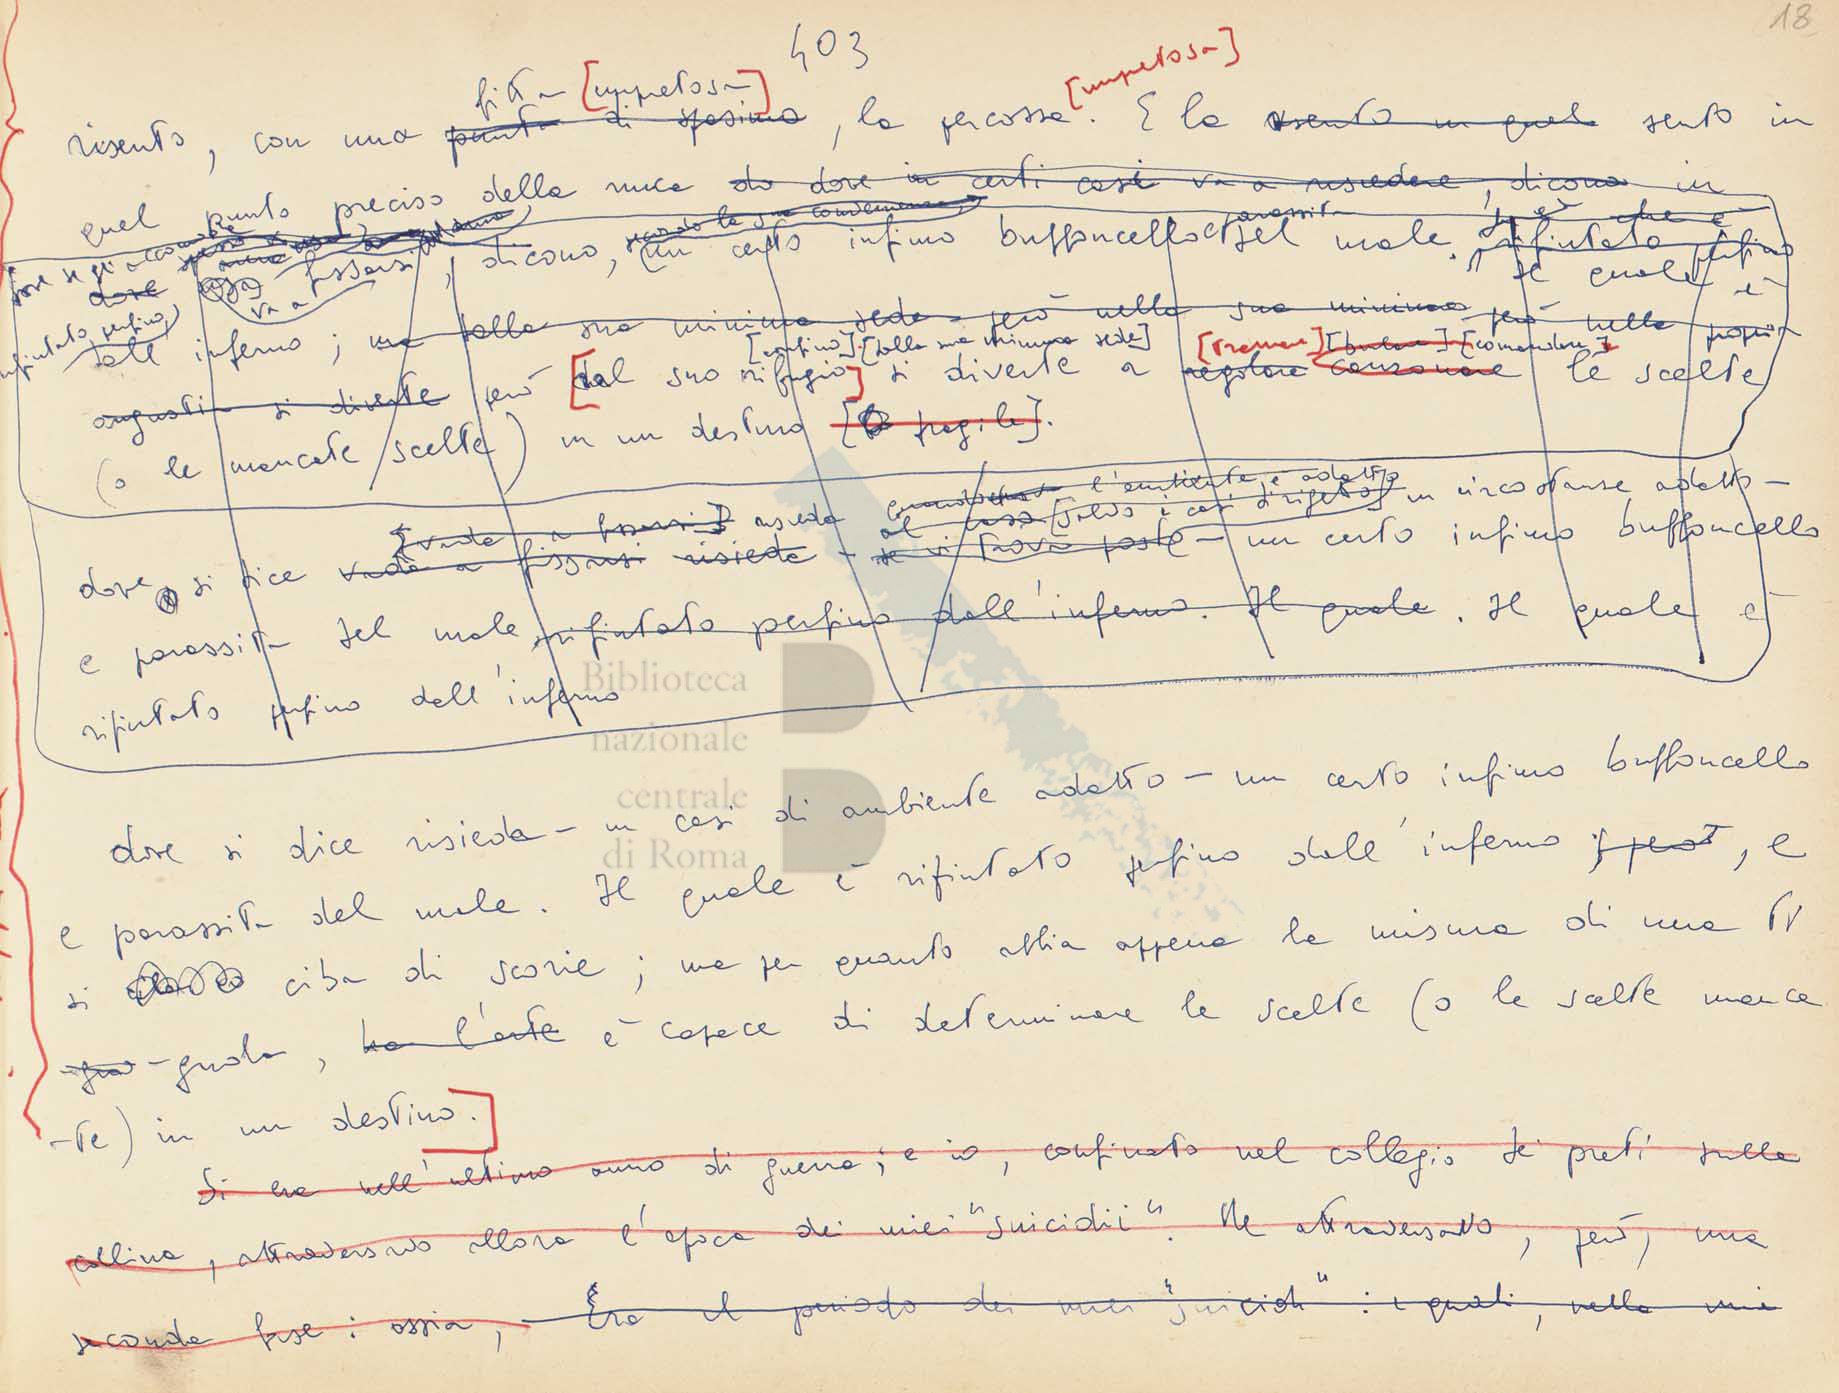 18
403
fitta [impetosa] [impetosa]
risento, con una punta di spasimo, la percossa. E la risento in quel sento in
quel punto preciso della nuca da dove in certi casi va a risiedere, dicono in
secondo la sua convenienza parassita
va a fissarsi, dicono, un certo infimo buffoncello del male. rifiutato perfino
dove Il quale è
rifiutato, perfino,
dall'inferno; ma dalla sua minima sede però nella sua minima però nella propria
[confino] [dalla sua minima sede] [tramare] [comandare]
angustia si diverte però [dal suo rifugio] si diverte a regolare le scelte
(o le mancate scelte) in un destino [fragile].
l'ambiente è adatto
[vada a fissarsi] risieda al caso in circostanze adatte -
dove si dice vada a fissarsi risieda - se vi trova posto - un certo infimo buffoncello
e parassita del male, rifiutato perfino dall'inferno. Il quale. Il quale è
rifiutato perfino dall'inferno
Biblioteca
nazionale
centrale
di Roma
dove si dice risieda - in casi di ambiente adatto - un certo infimo buffoncello
e parassita del male. Il quale è rifiutato perfino dall'inferno, e
si ciba di scorie; ma per quanto abbia appena la misura di una ti
-gnola, ha l'arte è capace di determinare le scelte (o le scelte manca
-te) in un destino.]
Si era nell'ultimo anno di guerra; e io, confinato nel collegio dei preti sulla
collina, attraversavo allora l'epoca dei miei "suicidii". Ne attraversavo, però, una
seconda fase: ossia, Era il periodo dei miei "suicidi": i quali, nella mia